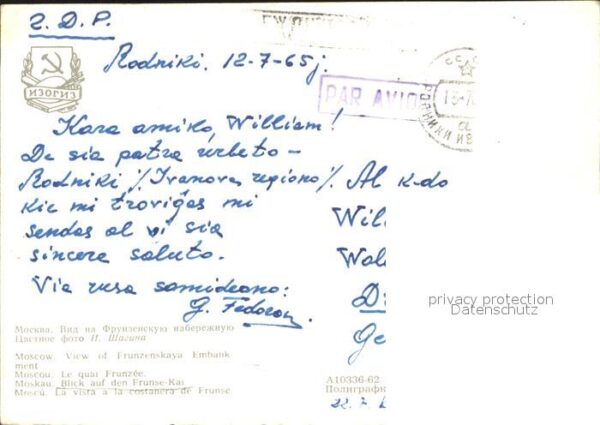 2. D. P.
Rodniki. 12-7-65j.
ИЗОГИЗ
PAR AVION
РОДНИКИ ИВ
Kara amiko, William!
De sia patra urbeto –
Rodniki /Ivanova regiono/.
kie mi troviĝas mi
sendas al vi sia
sincera saluto.
Via rusa samideano:
G. Fedorov
Al k-do
Wil
Wal
D
Ge
privacy protection
Datenschutz
Москва. Вид на Фрунзенскую набережную
Цветное фото И. Шагина
Moscow. View of Frunzenskaya Embank
ment
Moscou. Le quai Frunzée.
Moskau. Blick auf den Frunse-Kai
Moscú. La vista a la costanera de Frunse
А10336-62
Полиграфк
22.7.